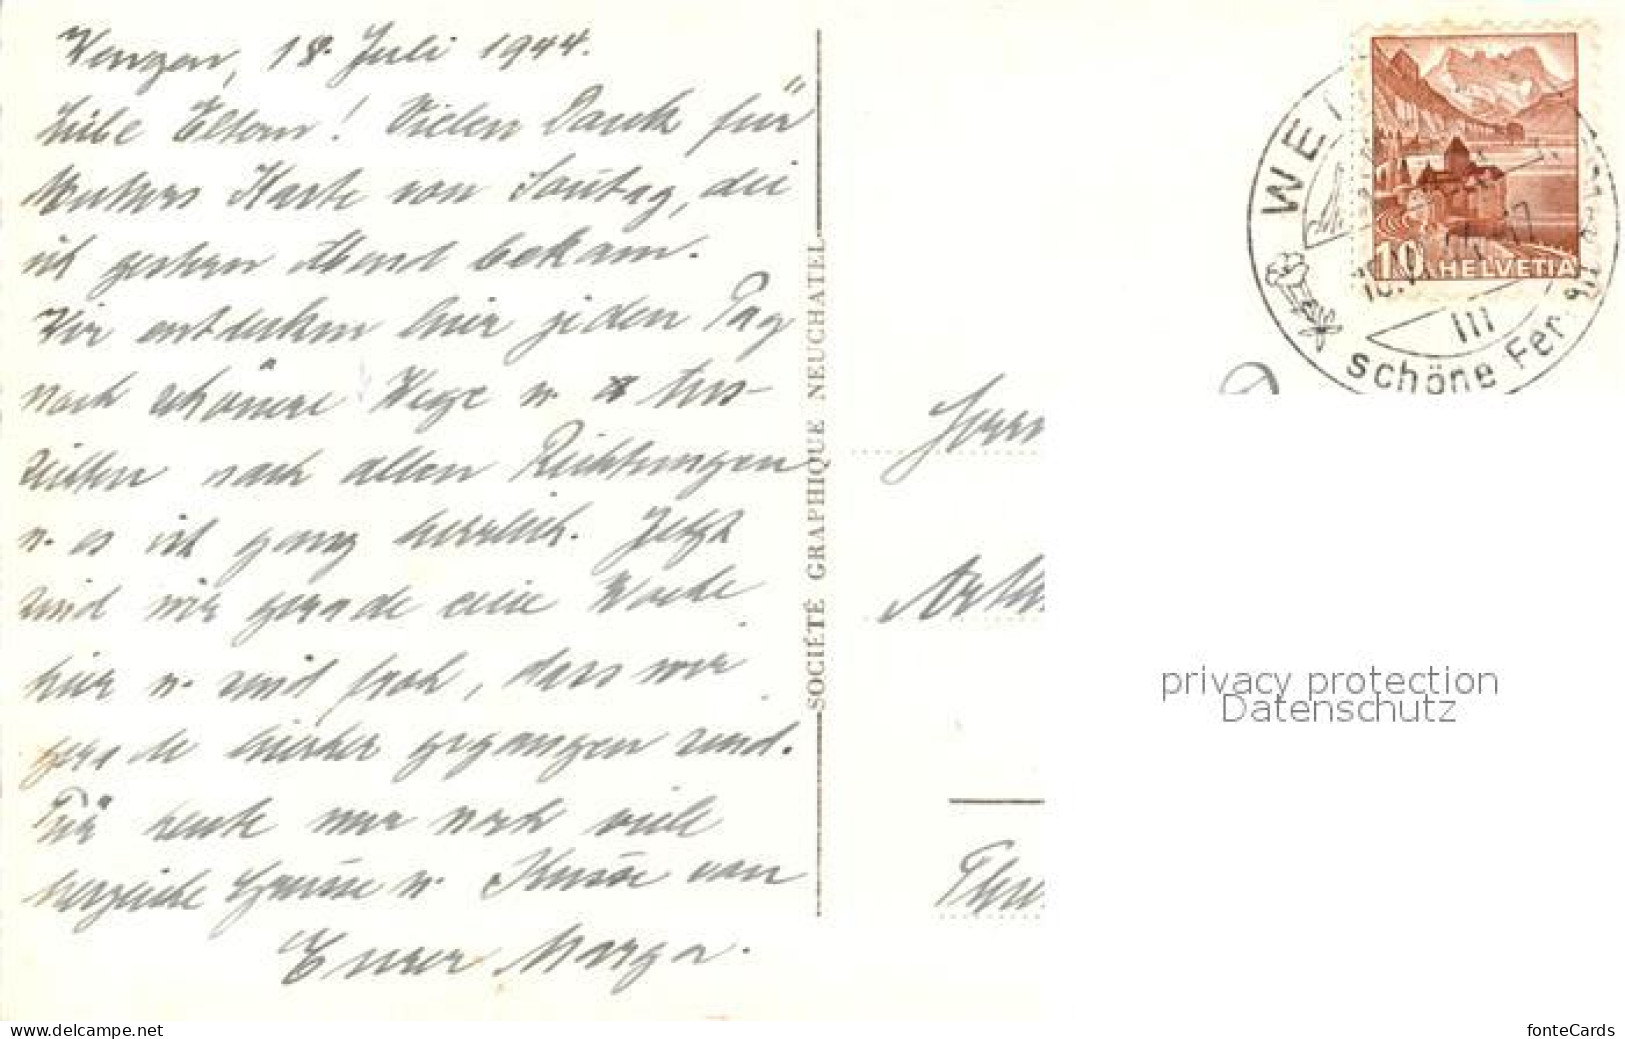 Wengen, 18. Juli 1944.
Liebe Eltern! Vielen Dank für
Mutters Karte von Sonntag, die
ich gestern Abend bekam.
Wir entdecken hier jeden Tag
noch schönere Wege u. Aus-
sichten nach allen Richtungen
u. es ist ganz herrlich. Jetzt
sind wir gerade eine Woche
hier u. sind froh, dass wir
gerade hierher gegangen sind.
Für heute nur noch viele
herzliche Grüsse u. Küsse von
Eurer Marga.
SOCIÉTÉ GRAPHIQUE NEUCHATEL
10 HELVETIA
WE
III
schöne Fer
Herrn
Arth
Thu
privacy protection
Datenschutz
www.delcampe.net
fonteCards